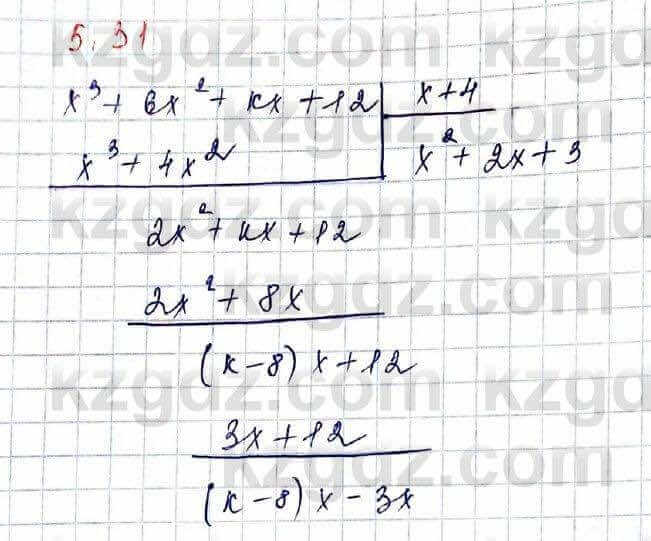 5.31
x³ + 6x² + kx + 12 | x + 4
x³ + 4x² | x² + 2x + 3
2x² + kx + 12
2x² + 8x
(k - 8) x + 12
3x + 12
(k - 8) x - 3x
kzgdz.com
kzgdz.com
kzgdz.com
kzgdz.com
kzgdz.com
kzgdz.com